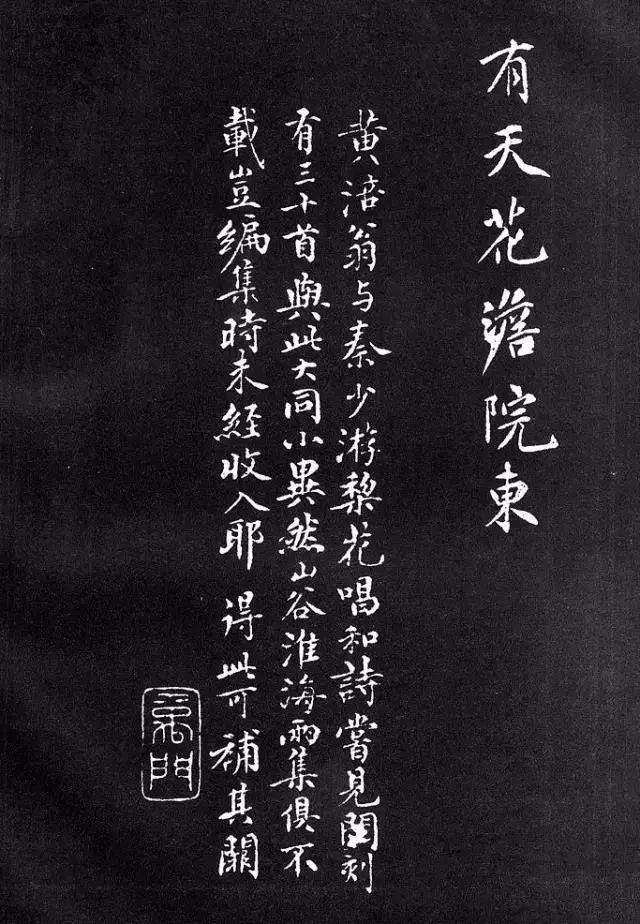 有天花澹院東
黄涪翁与秦少游黎花唱和詩嘗見閣刻
有三十首與此大同小異然山谷淮海兩集俱不
載豈編集時未經收入耶 得此可補其闕